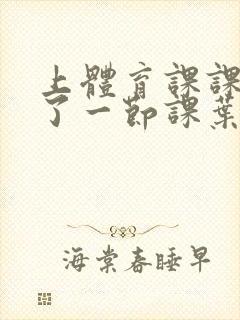 上體育課課
了一節課葉
海棠春睡早